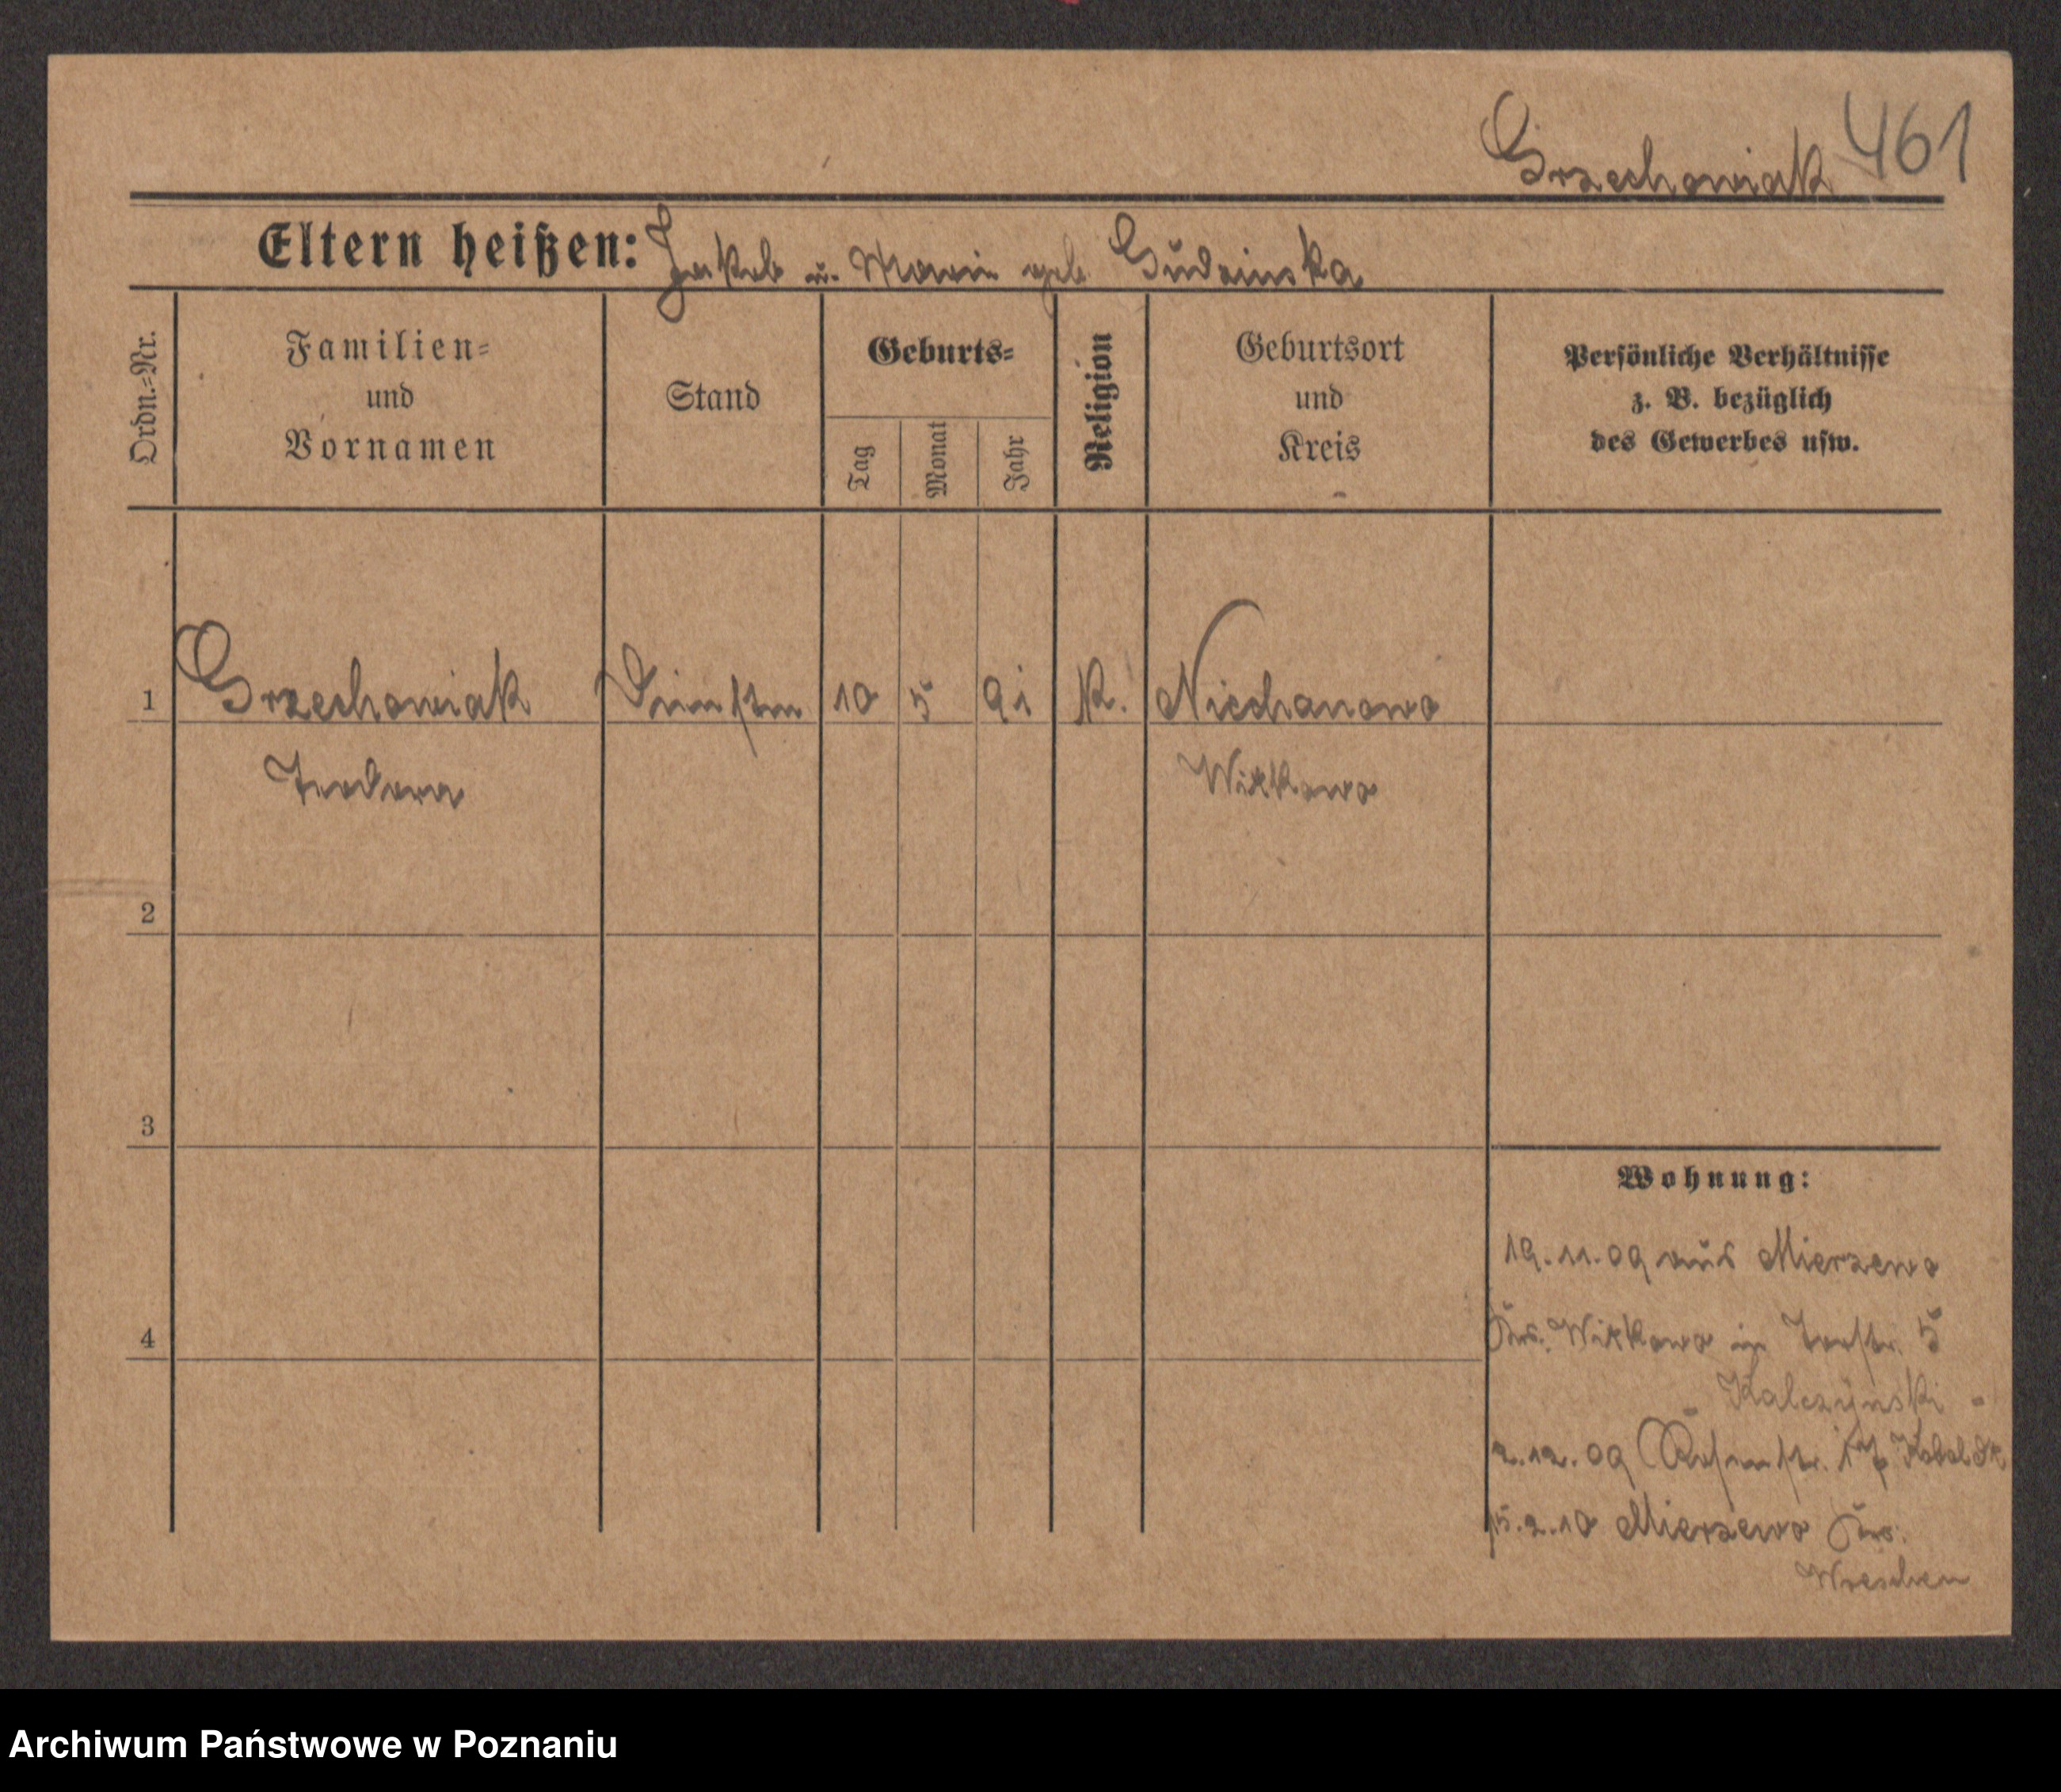 Grzechowiak 461
Eltern heißen: Jakob u. Marie geb. Gudzinska
Ordn.-Nr.
Familien-
und
Vornamen
Stand
Geburts-
Tag
Monat
Jahr
Religion
Geburtsort
und
Kreis
Persönliche Verhältnisse
z. B. bezüglich
des Gewerbes usw.
1 Grzechowiak 10 5 91 K. Niechanowo
Teodora Witkowo
2
3
Wohnung:
19.11.09 aus Mierzewo
4
Krs. Witkowo in Torstr. 5
- Kalczynski -
2.12.09 Rosenstr. 17
15.2.10 Mierzewo Krs.
Wreschen
Archiwum Państwowe w Poznaniu